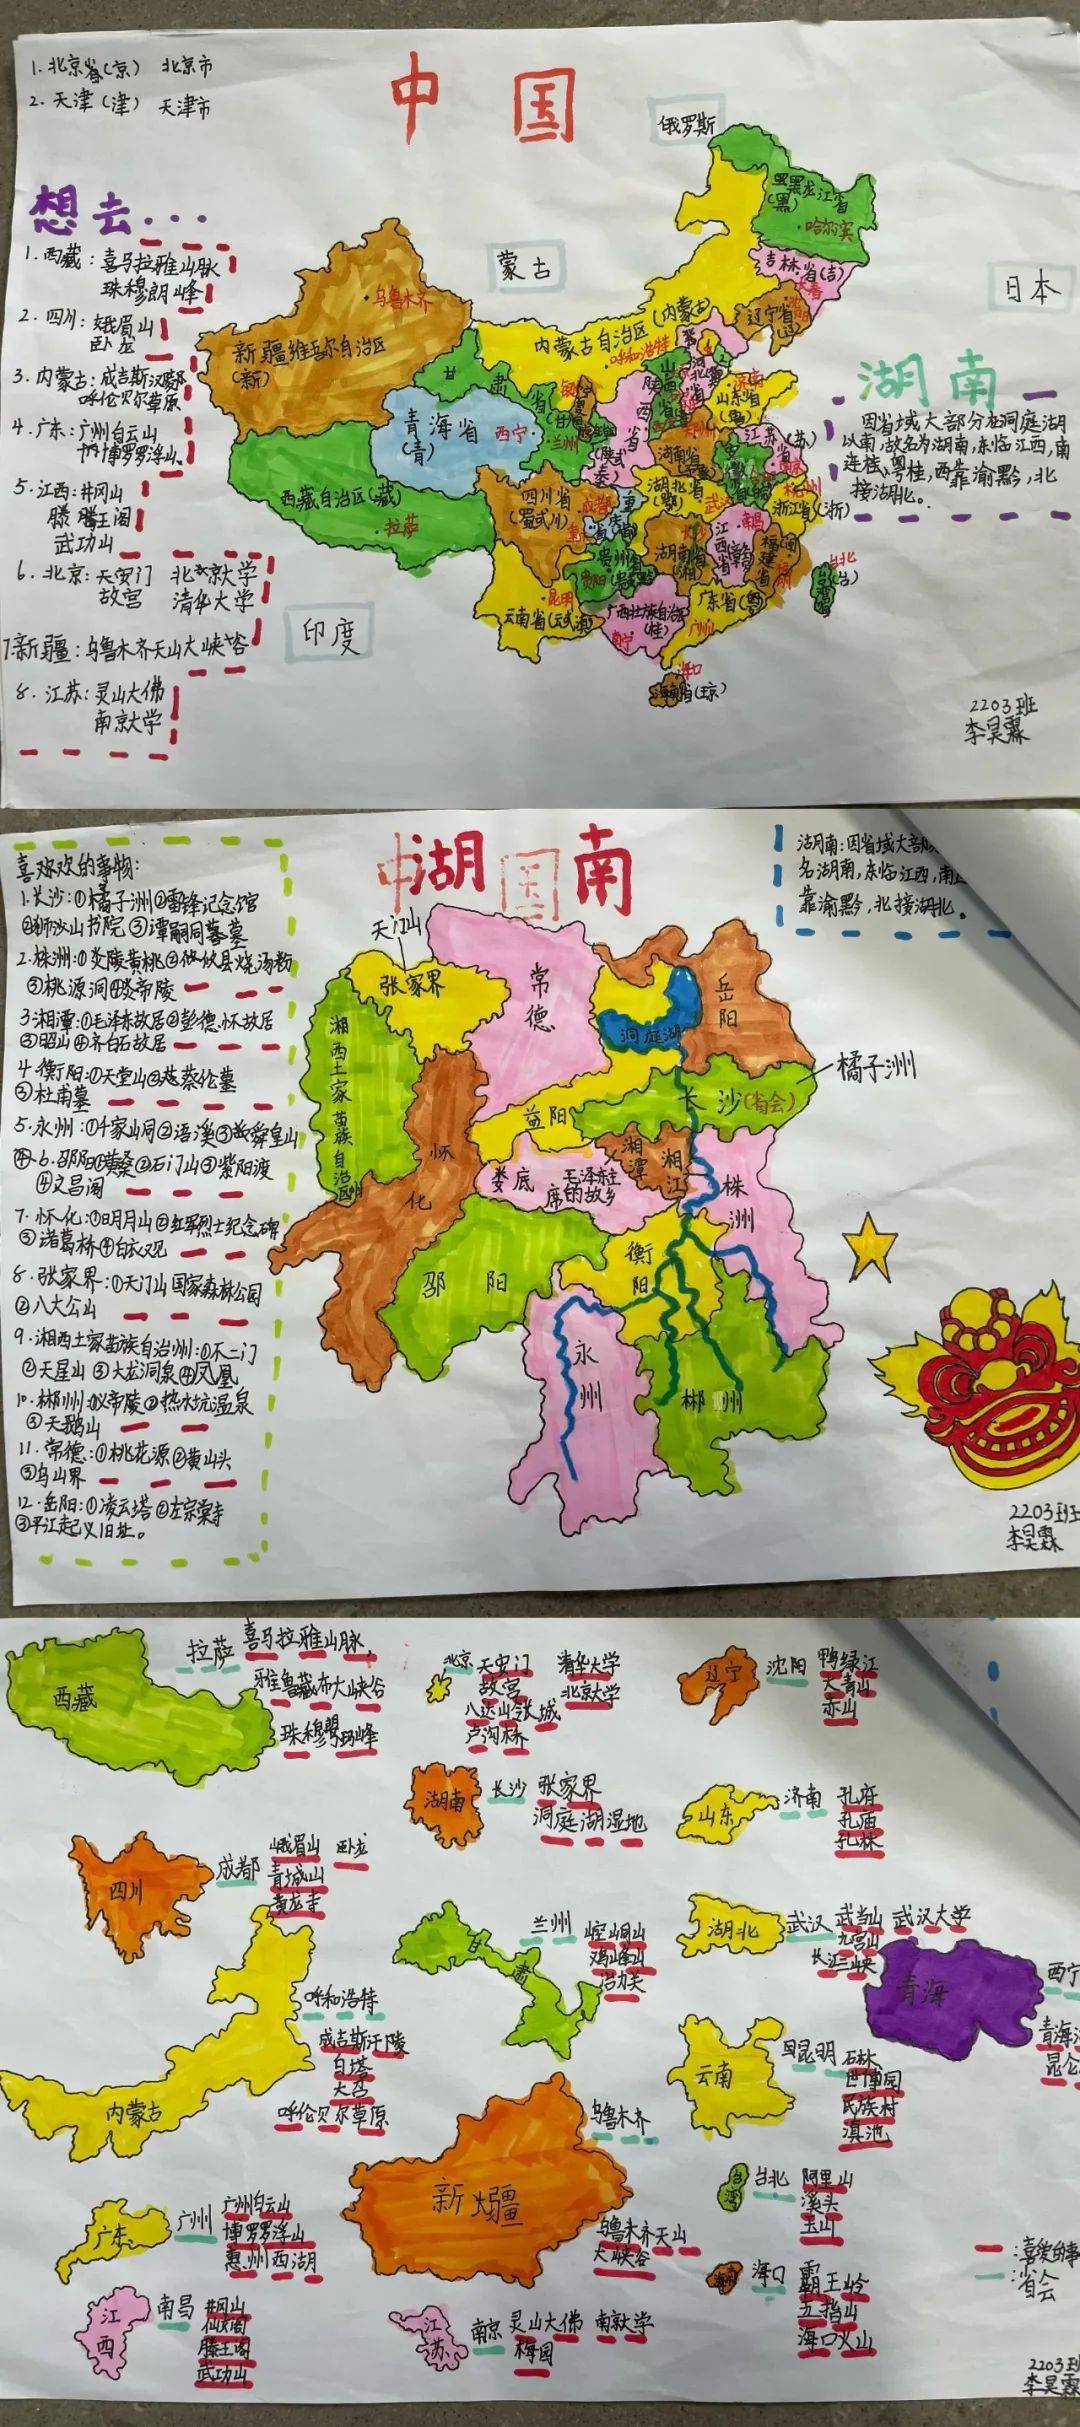 中国
1.北京省(京) 北京市
2.天津(津) 天津市
想去...
1.西藏:喜马拉雅山脉
珠穆朗峰
2.四川:峨眉山
卧龙
3.内蒙古:成吉斯汉陵
呼伦贝尔草原
4.广东:广州白云山
博罗罗浮山
5.江西:井冈山
滕王阁
武功山
6.北京:天安门 北京大学
故宫 清华大学
7.新疆:乌鲁木齐天山大峡谷
8.江苏:灵山大佛
南京大学
俄罗斯
蒙古
日本
印度
黑龙江省
(黑)
哈尔滨
吉林省(吉)
辽宁省
内蒙古自治区(内蒙古)
呼和浩特
乌鲁木齐
新疆维吾尔自治区
(新)
甘肃省
青海省
(青)
西宁
兰州
西藏自治区(藏)
拉萨
四川省
(蜀或川)
成都
陕西省
山东省
济南
江苏(苏)
河南省
湖北省
武汉
浙江省(浙)
湖南省
长沙
江西省
南昌
福建省
贵州省
贵阳
云南省
昆明
广西壮族自治区
(桂)
南宁
广东省(粤)
广州
海口
海南省(琼)
台北
台湾省
湖南
因省域大部分在洞庭湖
以南,故名为湖南,东临江西,南
连桂、粤桂,西靠渝黔,北
接湖北。
2203班
李昊霖
湖南
中国
喜欢欢的事物:
1.长沙:①橘子洲②雷锋记念馆
山书院③谭嗣同墓墓
2.株洲:①炎陵黄桃②攸攸县烧汤粉
③桃源洞④炎帝陵
3湘潭:①毛泽东故居②彭德怀故居
③昭山④齐白石故居
4.衡阳:①天堂山②蔡伦墓
③杜甫墓
5.永州:①千家山洞②浯溪③舜皇山
6.邵阳①黄桑②石门山③紫阳渡
④文昌阁
7.怀化:①明月山②红军烈士纪念碑
③诸葛桥④白衣观
8.张家界:①天门山国家森林公园
②八大公山
9.湘西土家苗族自治州:①不二门
②天星山③大龙洞泉④凤凰
10.郴州:①义帝陵②热水坑温泉
③天鹅山
11.常德:①桃花源②黄山头
③乌山界
12.岳阳:①凌云塔②左宗棠寺
③平江起义旧址。
湖南:因省域大部
名湖南,东临江西,南
靠渝黔,北接湖北。
天门山
张家界
常德
岳阳
洞庭湖
湘西土家苗族自治州
橘子洲
长沙(省会)
益阳
怀化
娄底
毛泽东主
席的故乡
湘潭
湘江
株洲
邵阳
衡阳
永州
郴州
2203班
李昊霖
西藏
拉萨 喜马拉雅山脉,
雅鲁藏布大峡谷
珠穆朗玛峰
北京 天安门 清华大学
故宫 北京大学
八达岭长城
卢沟桥
辽宁 沈阳 鸭绿江
大青山
赤山
湖南 长沙 张家界
洞庭湖湿地
山东 济南 孔府
孔庙
孔林
四川 成都 峨眉山 卧龙
青城山
黄龙寺
甘肃 兰州 崆峒山
鸡峰山
冶力关
湖北 武汉 武当山 武汉大学
九宫山
长江三峡
青海
西宁
青海
昆仑
内蒙古 呼和浩特
成吉斯汗陵
白塔
大召
呼伦贝尔草原
云南 昆明 石林
世博园
民族村
滇池
新疆 乌鲁木齐
乌鲁木齐天山
大峡谷
台湾 台北 阿里山
溪头
玉山
广东 广州 广州白云山
博罗罗浮山
惠州西湖
海南 海口 霸王岭
五指山
海口火山
江西 南昌 井冈山
滕王阁
武功山
江苏 南京 灵山大佛 南京大学
梅园
:喜欢的事
:省会
2203班
李昊霖